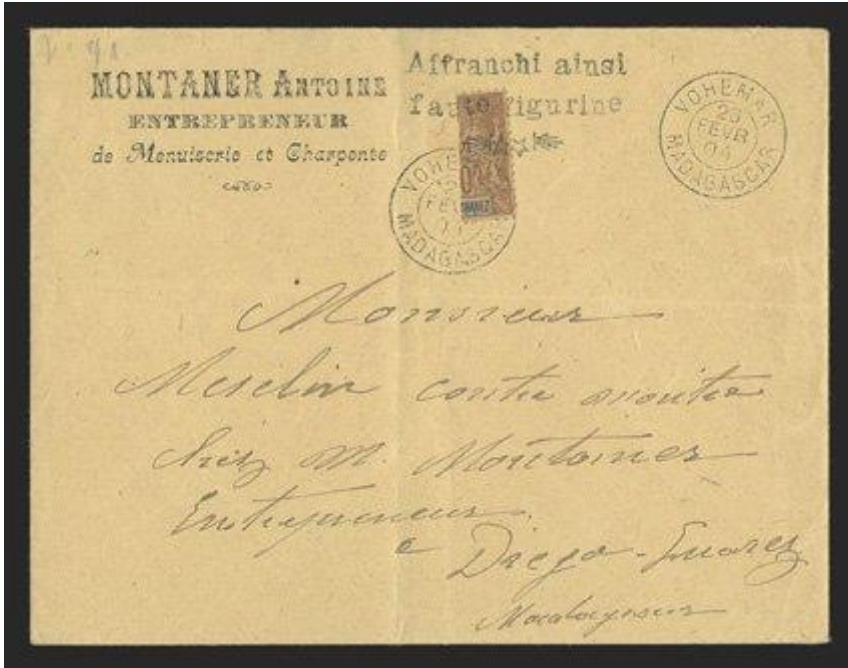 MONTANER ANTOINE
ENTREPRENEUR
de Menuiserie et Charpente
Affranchi ainsi
faute figurine
VOHEMAR
25
FEVR
04
MADAGASCAR
VOHEMAR
MADAGASCAR
Monsieur
contre maitre
chez M. Montaner
Entrepreneur
a Diego-Suarez
Madagascar